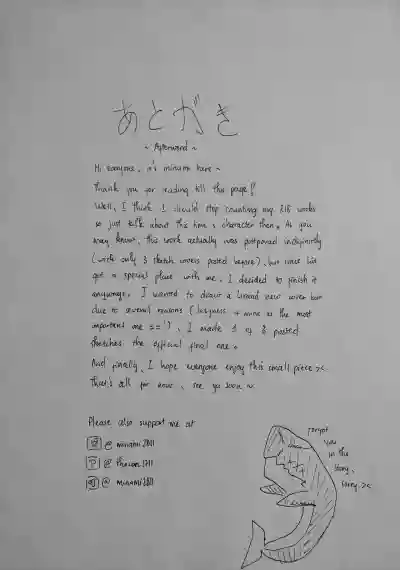 あとがき
~ Afterword ~
Hi everyone, it's minami here ~
Thank you for reading till this page!!
Well, I think I should stop counting my works
so just talk about this time's character then. As you
may know, this work actually was postponed indefinitely
(with only 3 sketch covers posted before), but since
got a special place with me, I decided to finish it
anyways. I wanted to draw a brand new cover but
due to several reasons (laziness + mine is the most
important one ==''), I made 1 of 3 posted
sketches the official final one.
And finally, I hope everyone enjoy this small piece ><
That's all for now, see you soon ~
Please also support me at
@ minami
@
@ minami
forgot
you
in the
story,
sorry ><